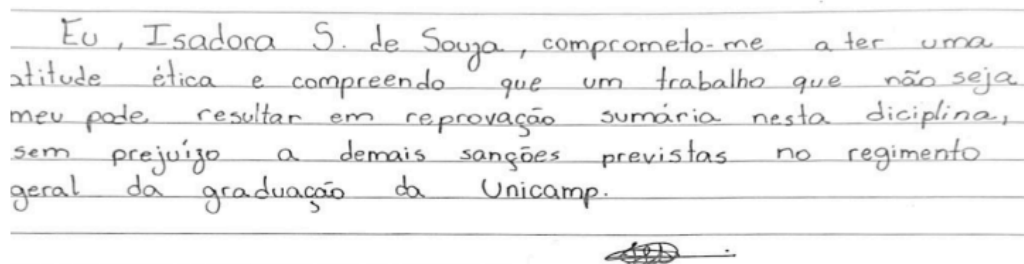 Eu, Isadora S. de Souza, comprometo-me a ter uma
atitude ética e compreendo que um trabalho que não seja
meu pode resultar em reprovação sumária nesta diciplina,
sem prejuízo a demais sanções previstas no regimento
geral da graduação da Unicamp.